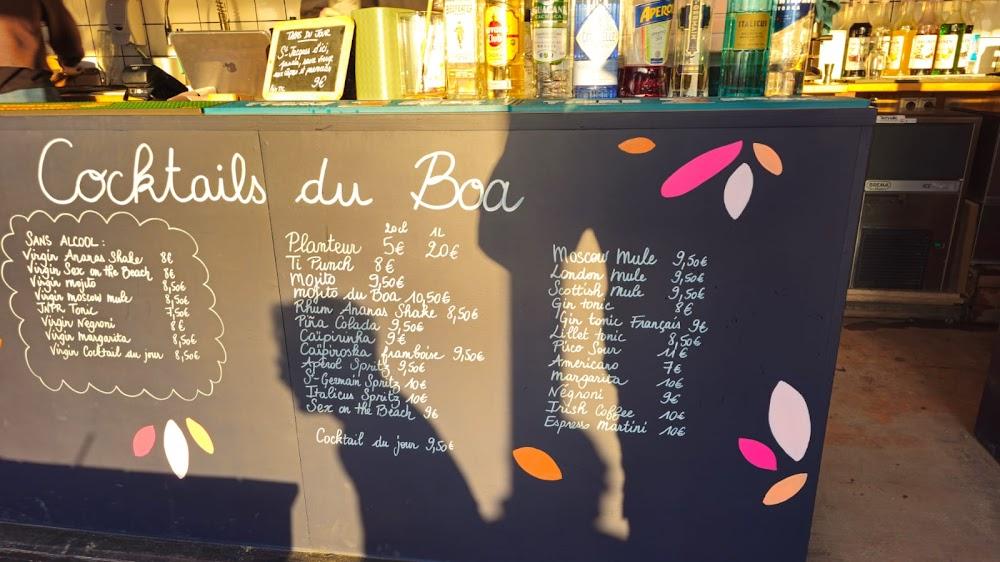 TAPAS DU JOUR
9€
HAVANA
APEROL
ITALICUS
BREMA
Cocktails du Boa
SANS ALCOOL :
Virgin Ananas Shake 8€
Virgin Sex on the Beach 8€
Virgin mojito 8,50€
Virgin moscow mule 8,50€
JNPR Tonic 7,50€
Virgin Negroni 8€
Virgin margarita 8,50€
Virgin Cocktail du jour 8,50€
20cl 1L
Planteur 5€ 20€
Ti Punch 8€
Mojito 9,50€
Mojito du Boa 10,50€
Rhum Ananas Shake 8,50€
Piña Colada 9,50€
Caïpirinha 9€
Caïpiroska framboise 9,50€
Apérol Spritz 9,50€
St-Germain Spritz 10€
Italicus Spritz 10€
Sex on the Beach 9€
Cocktail du jour 9,50€
Moscow Mule 9,50€
London Mule 9,50€
Scottish Mule 9,50€
Gin tonic 8€
Gin tonic Français 9€
Lillet tonic 8,50€
Pisco Sour 11€
Americano 7€
Margarita 10€
Négroni 9€
Irish Coffee 10€
Espresso Martini 10€